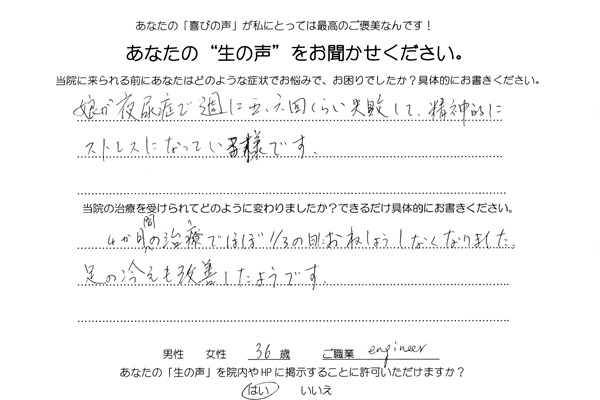 あなたの「喜びの声」が私にとっては最高のご褒美なんです！
あなたの“生の声”をお聞かせください。
当院に来られる前にあなたはどのような症状でお悩みで、お困りでしたか？具体的にお書きください。
娘が夜尿症で週に五、六回くらい失敗して、精神的に
ストレスになってい 様です。
当院の治療を受けられてどのように変わりましたか？できるだけ具体的にお書きください。
4か月間の治療でほぼ1/3の日におねしょうしなくなりました。
足の冷えも改善したようです。
男性 女性 36歳 ご職業 engineer
あなたの「生の声」を院内やHPに掲示することに許可いただけますか？
はい いいえ